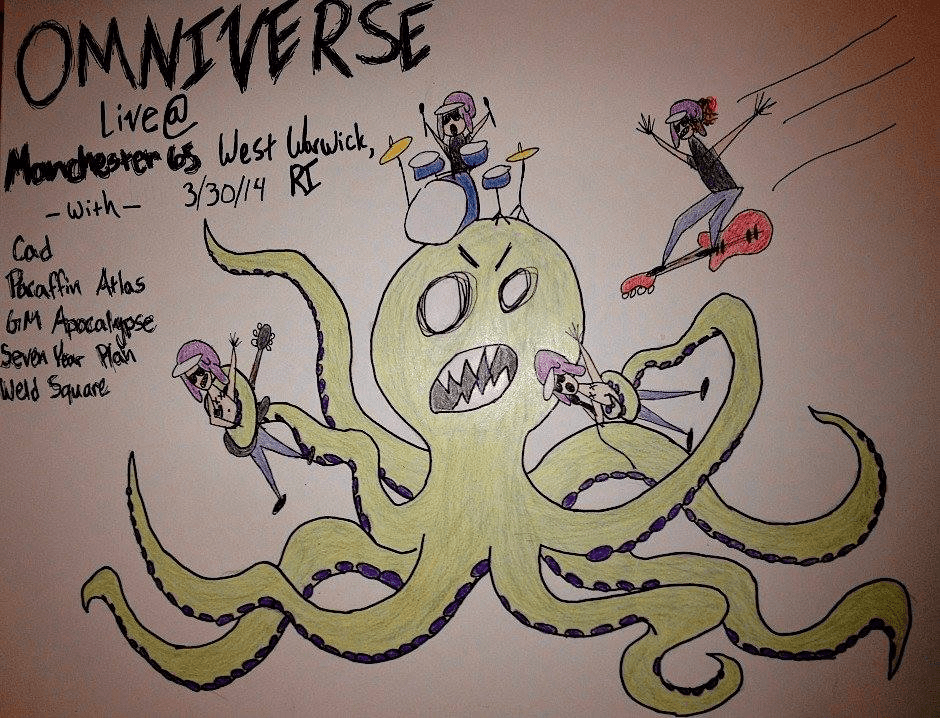 OMNIVERSE
Live@
Manchester 65 West Warwick,
3/30/14 RI
-with-
Cad
Paraffin Atlas
GM Apocalypse
Seven Year Plan
Weld Square